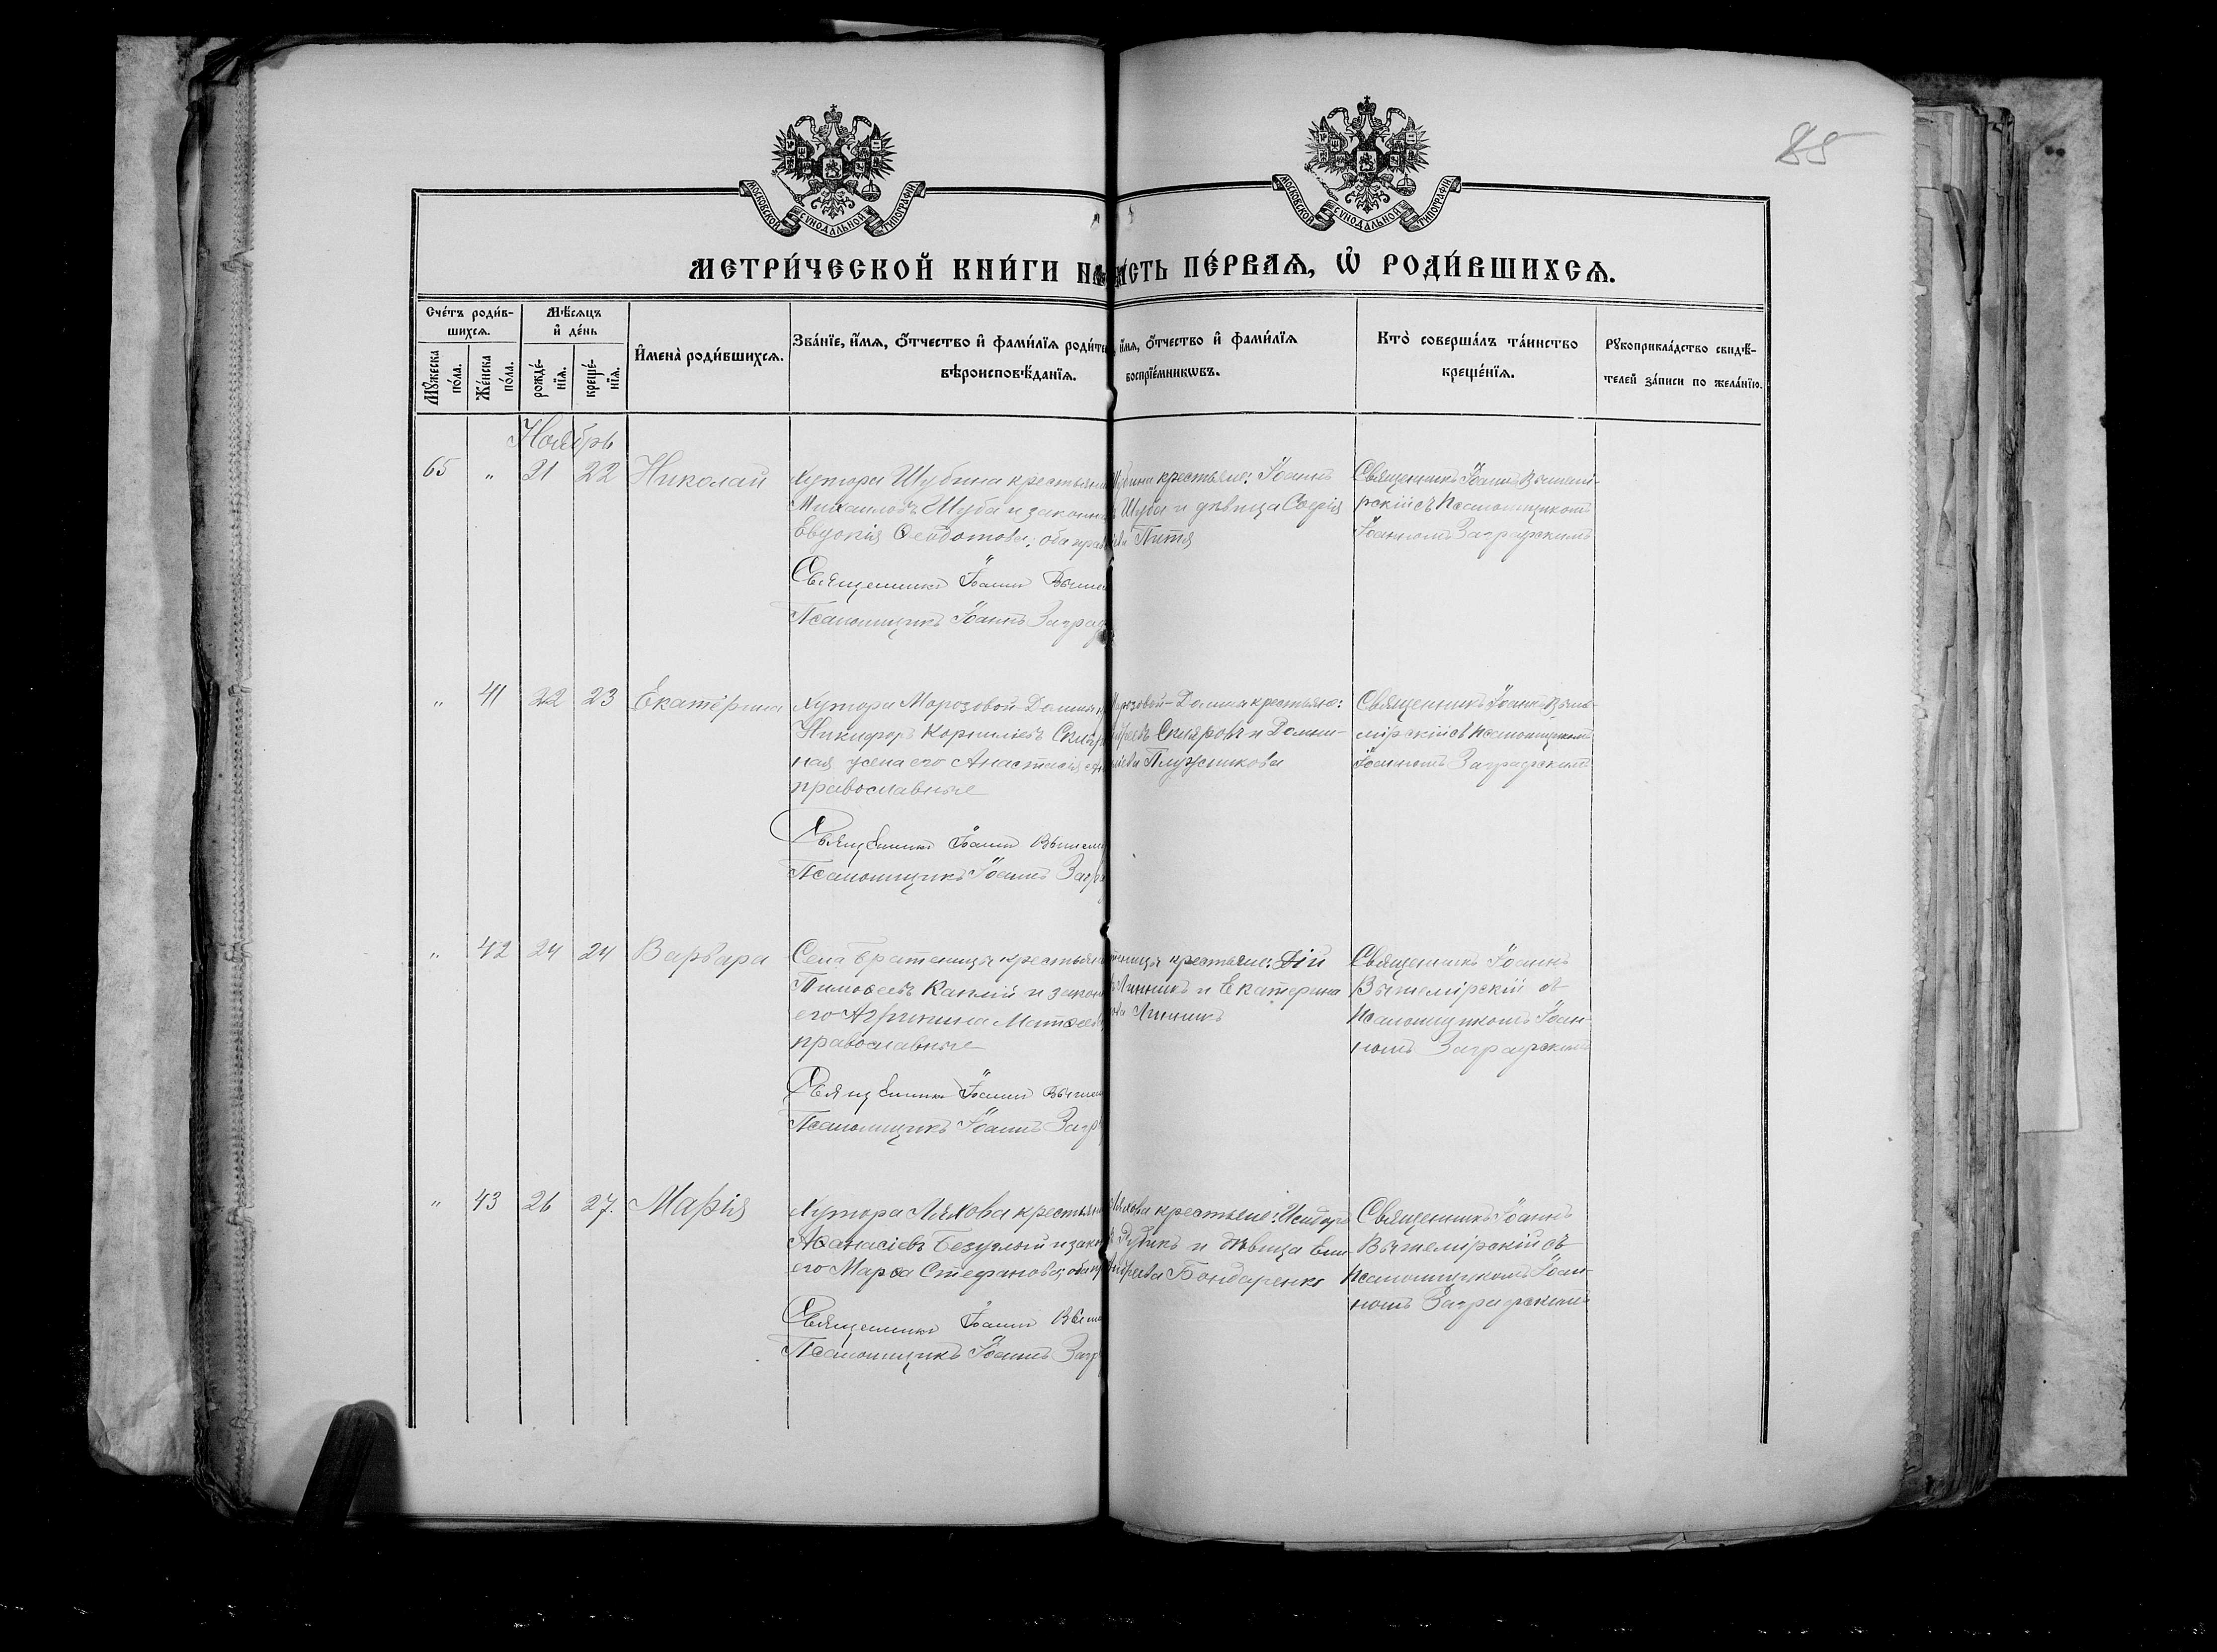 85
МОСКОВСКОЙ СѴНОДАЛЬНОЙ ТИПОГРАФІИ
МОСКОВСКОЙ СѴНОДАЛЬНОЙ ТИПОГРАФІИ
МЕТРИ́ЧЕСКОЙ КНИ́ГИ НА
СТЬ ПЕ́РВАѦ, Ѽ РОДИ́ВШИХСѦ.
Сче́тъ роди́в-
шихсѧ.
Мꙋ́жеска
по́ла.
Же́нска
по́ла.
Мѣ́сѧцъ
и҆ де́нь
рожде́-
нїѧ.
креще́-
нїѧ.
И҆мена̀ роди́вшихсѧ.
Зва́нїе, и҆́мѧ, ѻ҆́тчество и҆ фами́лїѧ роди́те
вѣроисповѣ́данїѧ.
и҆́мѧ, ѻ҆́тчество и҆ фами́лїѧ
воспрїе́мникѡвъ.
Кто̀ соверша́лъ та́инство
креще́нїѧ.
Рꙋкоприкла́дство свидѣ́-
телей за́писи по жела́нїю.
Ноябрь
65 " 21 22 Николай
Хутора Шубина крестьяни
Михаиловъ Шуба и законн
Евдокія Ѳеодотова; оба прав
Священникъ Іоаннъ Выше
Псаломщикъ Іоаннъ Заград
крестьяне: Іоаннъ
Шуба и дѣвица Софія
Питя
Священникъ Іоаннъ Вышемі-
рскій съ Псаломщикомъ
Іоанномъ Заградскимъ
" 41 22 23 Екатерина
Хутора Морозовой-Долины
Никифоръ Корниліевъ Скляр
ная жена его Анастасія
православные
Священникъ Іоаннъ Вышемі
Псаломщикъ Іоаннъ Загра
Морозовой-Долины крестьяне:
Скляровъ и Домни-
Плужникова
Священникъ Іоаннъ Выше-
мірскій съ Псаломщикомъ
Іоанномъ Заградскимъ
" 42 24 24 Варвара
Села Братеницъ крестьяни
Тимоѳеевъ Каплій и закон
его Агрипина Матѳеев
православные
Священникъ Іоаннъ Вышем
Псаломщикъ Іоаннъ Загр
крестьяне:
Линникъ и Екатерина
Линникъ
Священникъ Іоаннъ
Вышемірскій съ
Псаломщикомъ Іоан-
номъ Заградскимъ
" 43 26 27. Марія
Хутора Ляхова крестьяни
Аѳанасіевъ Безуглый и закон
его Марѳа Стефанова; оба пр
Священникъ Іоаннъ Выше
Псаломщикъ Іоаннъ Загр
Ляхова крестьяне: Исидоръ
Дудикъ и дѣвица Ели-
Андреева Бондаренко
Священникъ Іоаннъ
Вышемірскій съ
Псаломщикомъ Іоан-
номъ Заградскимъ